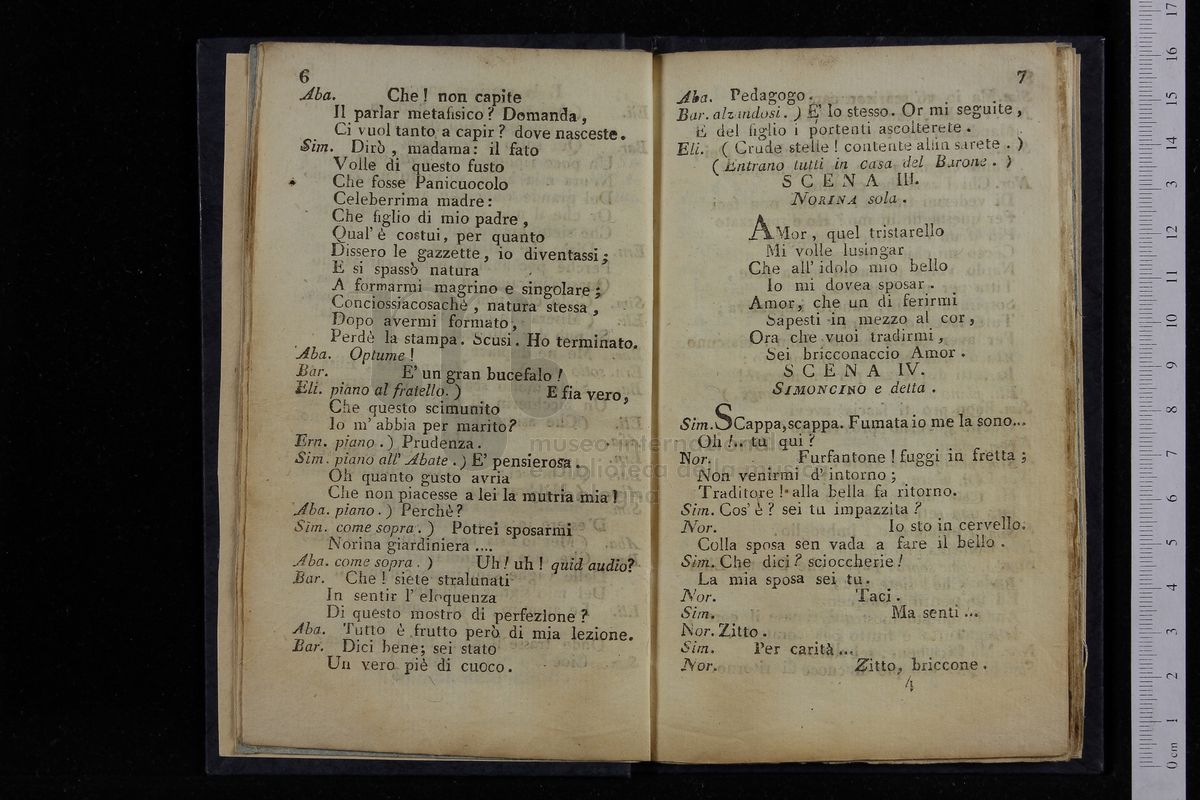 6
Aba. Che! non capite
Il parlar metafisico? Domanda,
Ci vuol tanto a capir? dove nasceste.
Sim. Dirò, madama: il fato
Volle di questo fusto
Che fosse Panicuocolo
Celeberrima madre:
Che figlio di mio padre,
Qual' è costui, per quanto
Dissero le gazzette, io diventassi;
E si spassò natura
A formarmi magrino e singolare;
Conciossiacosachè, natura stessa,
Dopo avermi formato,
Perdè la stampa. Scusi. Ho terminato.
Aba. Optume!
Bar. E' un gran bucefalo!
Eli. piano al fratello.) E fia vero,
Che questo scimunito
Io m' abbia per marito?
Ern. piano.) Prudenza.
Sim. piano all' Abate.) E' pensierosa.
Oh quanto gusto avria
Che non piacesse a lei la mutria mia!
Aba. piano.) Perchè?
Sim. come sopra.) Potrei sposarmi
Norina giardiniera ....
Aba. come sopra.) Uh! uh! quid audio?
Bar. Che! siete stralunati
In sentir l' eloquenza
Di questo mostro di perfezione?
Aba. Tutto è frutto però di mia lezione.
Bar. Dici bene; sei stato
Un vero piè di cuoco.
7
Aba. Pedagogo.
Bar. alzandosi.) E' lo stesso. Or mi seguite,
E del figlio i portenti ascolterete.
Eli. (Crude stelle! contente alfin sarete.)
(Entrano tutti in casa del Barone.)
SCENA III.
NORINA sola.
AMor, quel tristarello
Mi volle lusingar
Che all' idolo mio bello
Io mi dovea sposar.
Amor, che un dì ferirmi
Sapesti in mezzo al cor,
Ora che vuoi tradirmi,
Sei bricconaccio Amor.
SCENA IV.
SIMONCINO e detta.
Sim. SCappa, scappa. Fumata io me la sono...
Oh!.. tu qui?
Nor. Furfantone! fuggi in fretta;
Non venirmi d' intorno;
Traditore! alla bella fa ritorno.
Sim. Cos' è? sei tu impazzita?
Nor. Io sto in cervello.
Colla sposa sen vada a fare il bello.
Sim. Che dici? scioccherie!
La mia sposa sei tu.
Nor. Taci.
Sim. Ma senti...
Nor. Zitto.
Sim. Per carità...
Nor. Zitto, briccone.
4
museo internazionale
e biblioteca della musica
di Bologna
0 cm 1 2 3 4 5 6 7 8 9 10 11 12 13 14 15 16 17